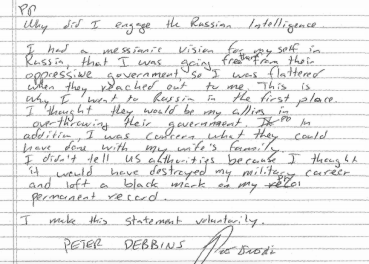 PP
Why did I engage the Russian Intelligence
I had a messianic vision for myself in
Russia, that I was going free them from their
oppressive government, so I was flattered
when they reached out to me. This is
why I went to Russia in the first place.
I thought they would be my allies in
overthrowing their government In
addition, I was concern what they could
have done with my wife's family.
I didn't tell US authorities because I thought
it would have destroyed my military career
and left a black mark on my
permanent record.
I make this statement voluntarily.
PETER DEBBINS